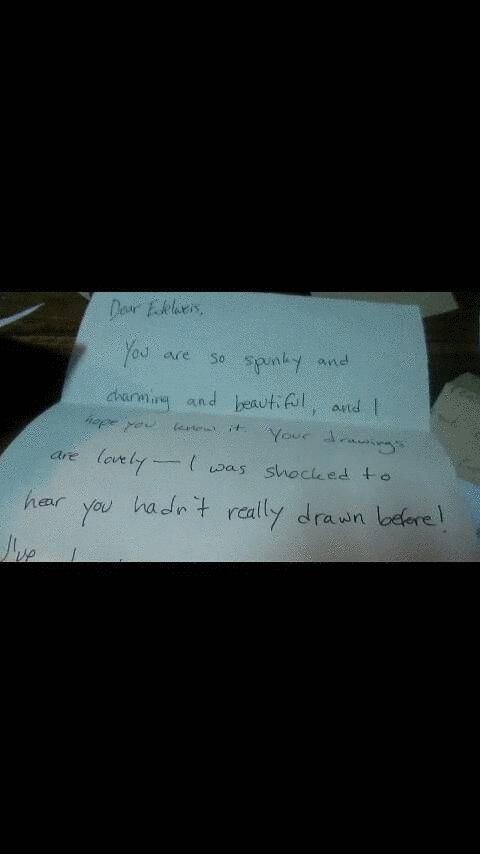 Dear Edelweis,
You are so spunky and
charming and beautiful, and I
hope you know it. Your drawings
are lovely — I was shocked to
hear you hadn't really drawn before!
I've